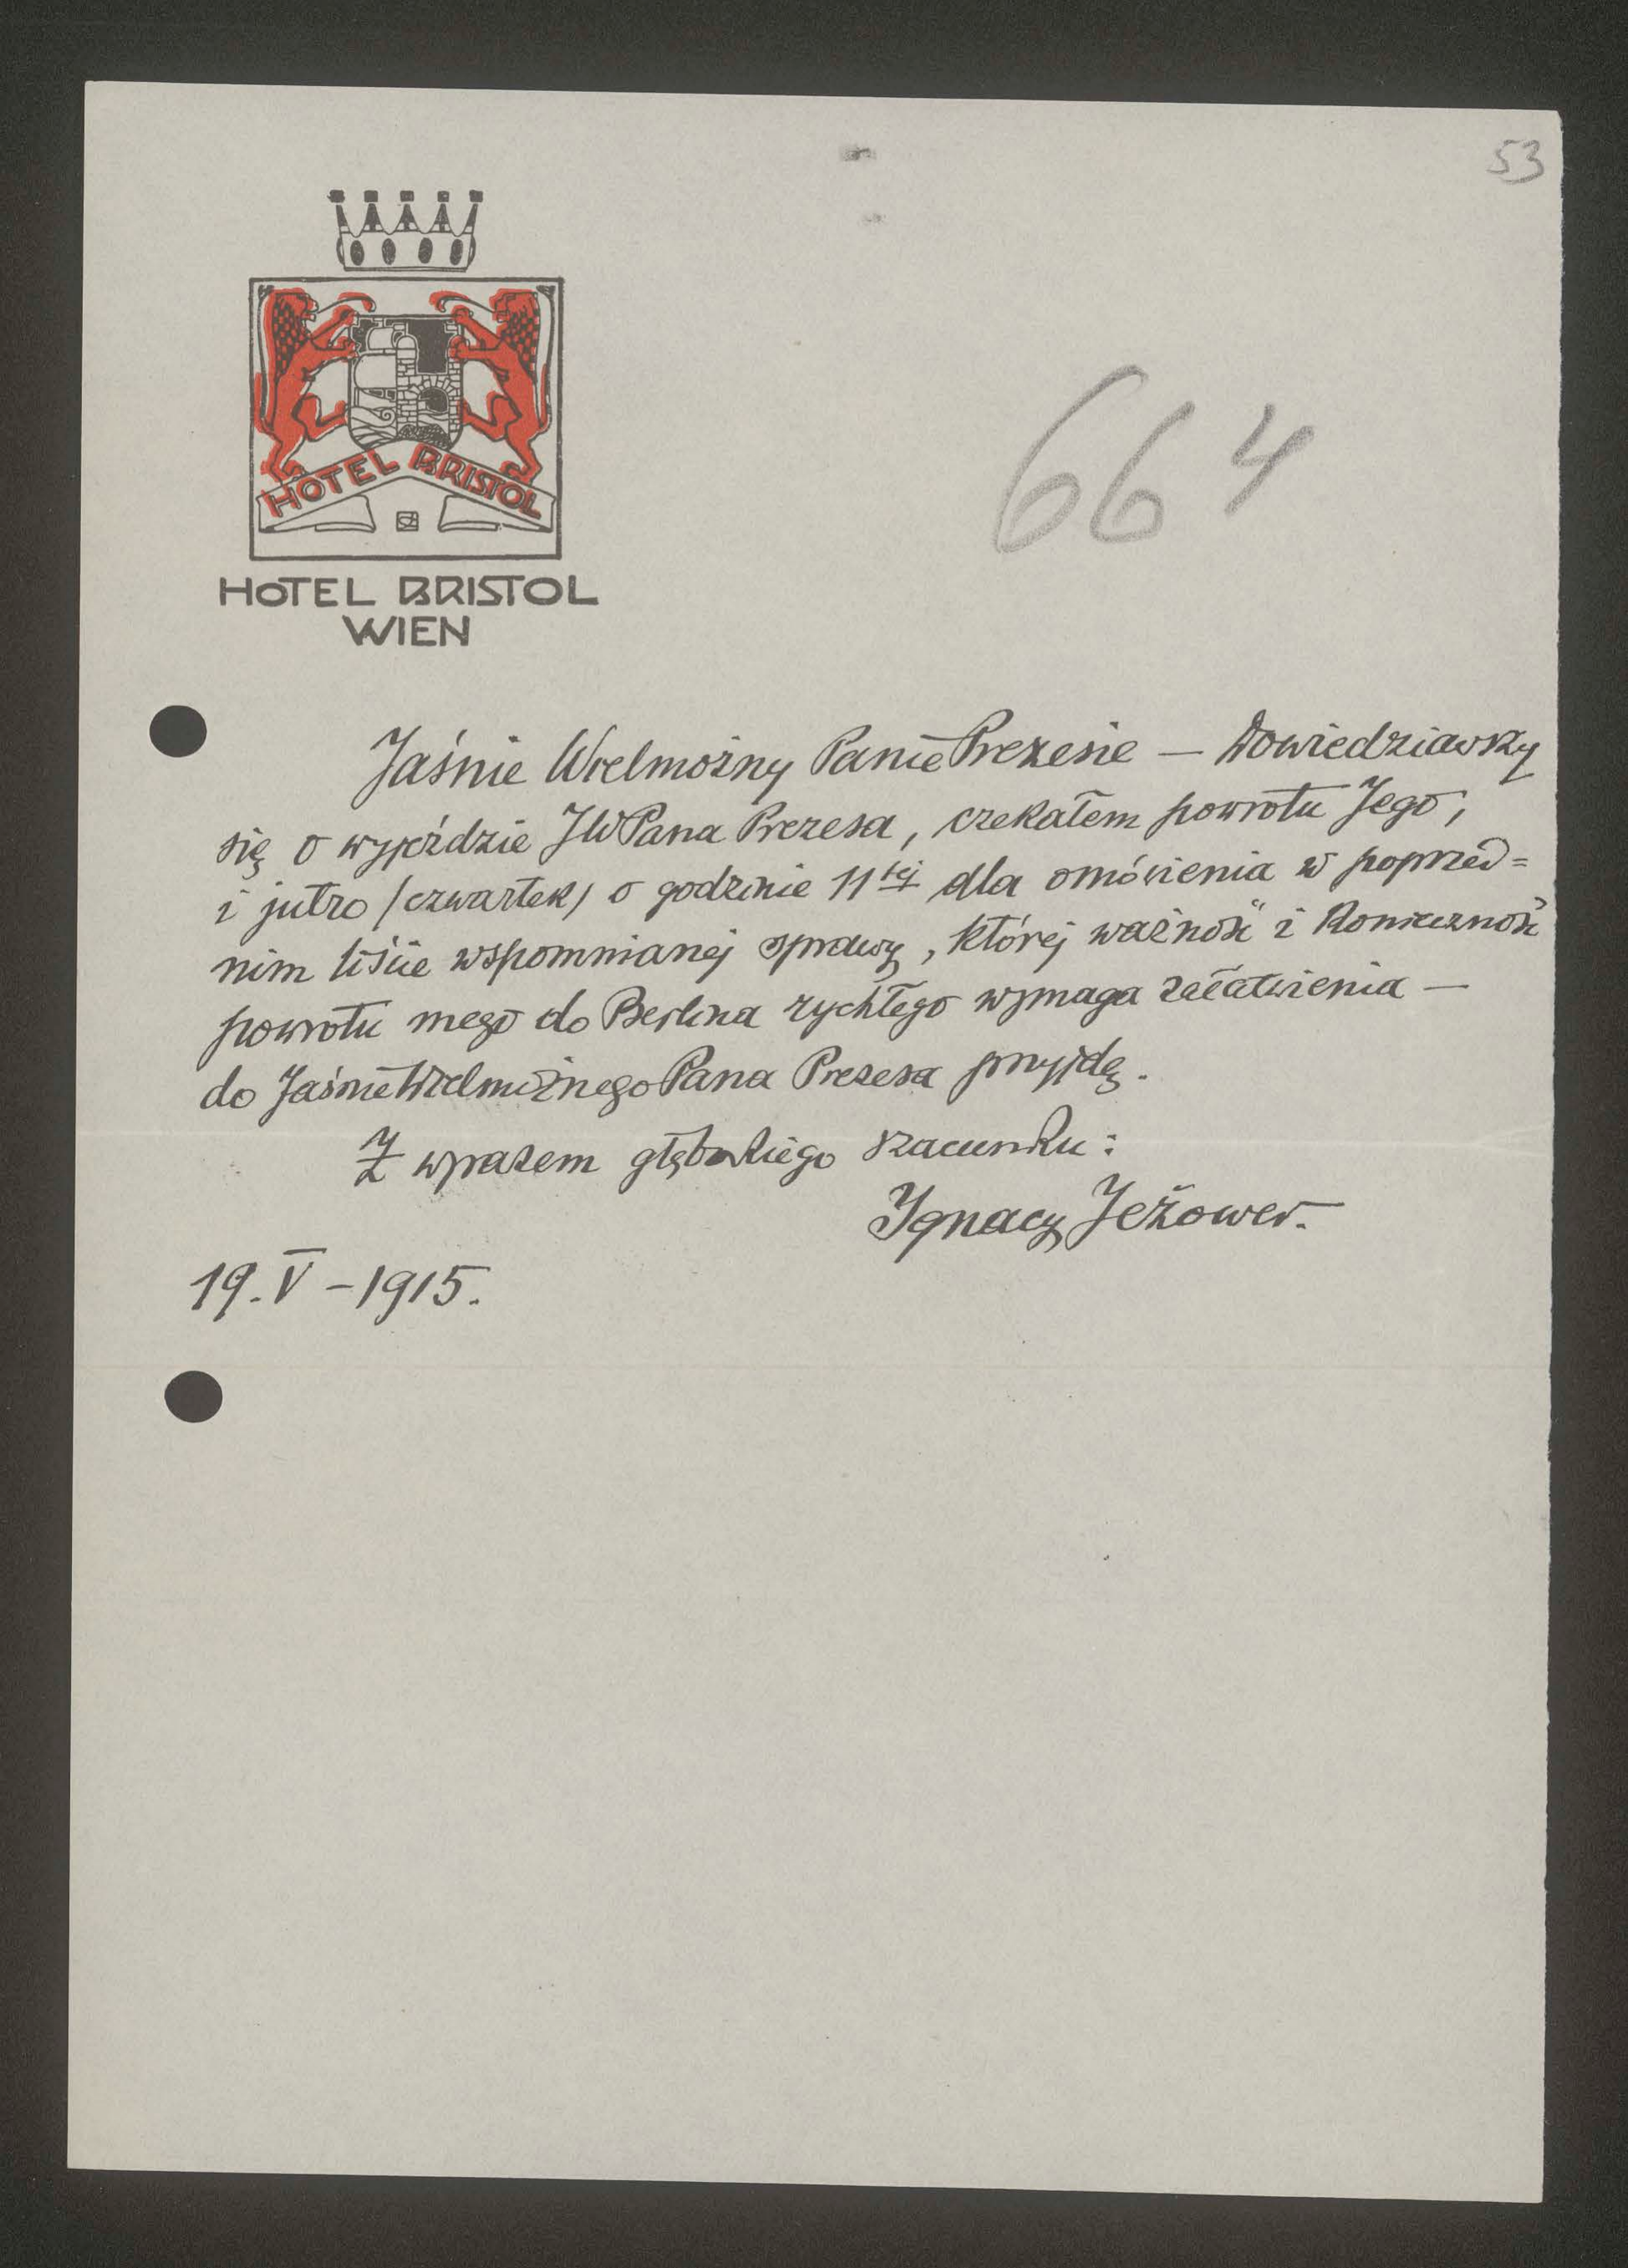 53
HOTEL BRISTOL
HOTEL BRISTOL
WIEN
664
Jaśnie Wielmożny Panie Prezesie — Dowiedziawszy
się o wyjeździe JWPana Prezesa, czekałem powrotu Jego,
i jutro /czwartek/ o godzinie 11tej dla omówienia w poprzed=
nim liście wspomnianej sprawy, której ważność i konieczność
powrotu mego do Berlina rychłego wymaga załatwienia —
do Jaśnie Wielmożnego Pana Prezesa przyjdę.
Z wyrazem głębokiego szacunku:
Ignacy Jeżower.
19. V – 1915.